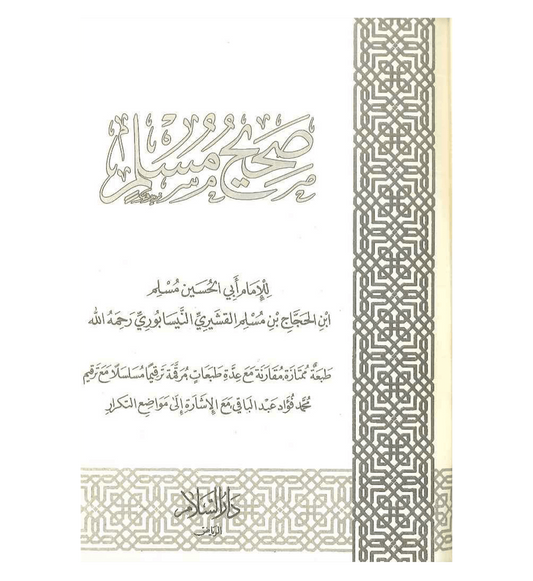 صحيح مسلم
لِلإمَام أَبي الحُسَين مُسْلِم
ابْنِ الحَجَّاجِ بْنِ مُسْلِم القُشَيْرِيِّ النَّيسَابُورِيِّ رَحمَهُ الله
طَبعَةٌ مُمتَازَة مُقَارَنَة مَعَ عِدَّةِ طَبعَاتٍ مُرَقَّمَة تَرقِيمًا مُسَلسَلًا مَعَ تَرقِيم
مُحَمَّد فُؤَاد عَبْد البَاقِي مَعَ الإِشَارَةِ إِلَى مَوَاضِعِ التَّكرَارِ
دَارُ السَّلَام
الرياض